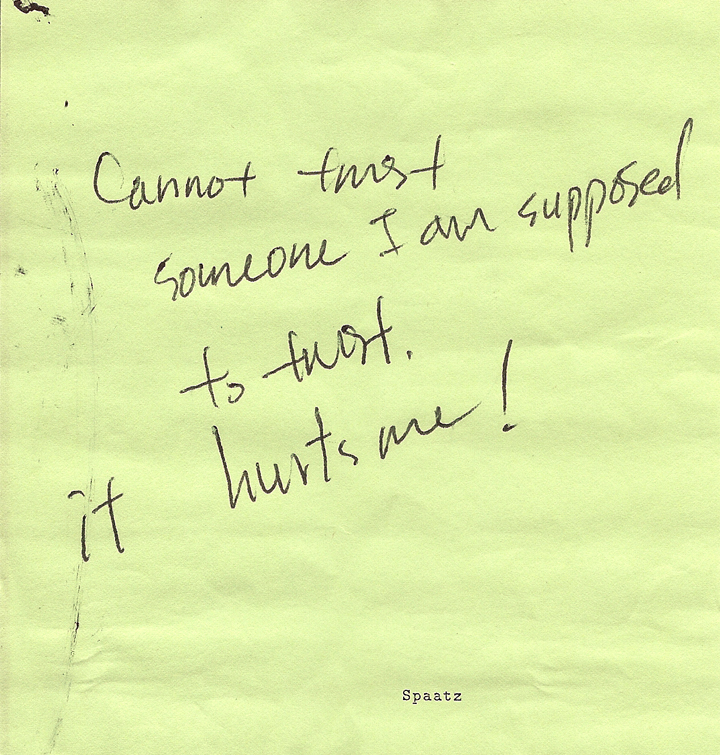 Cannot trust
someone I am supposed
to trust.
it hurts me!
Spaatz